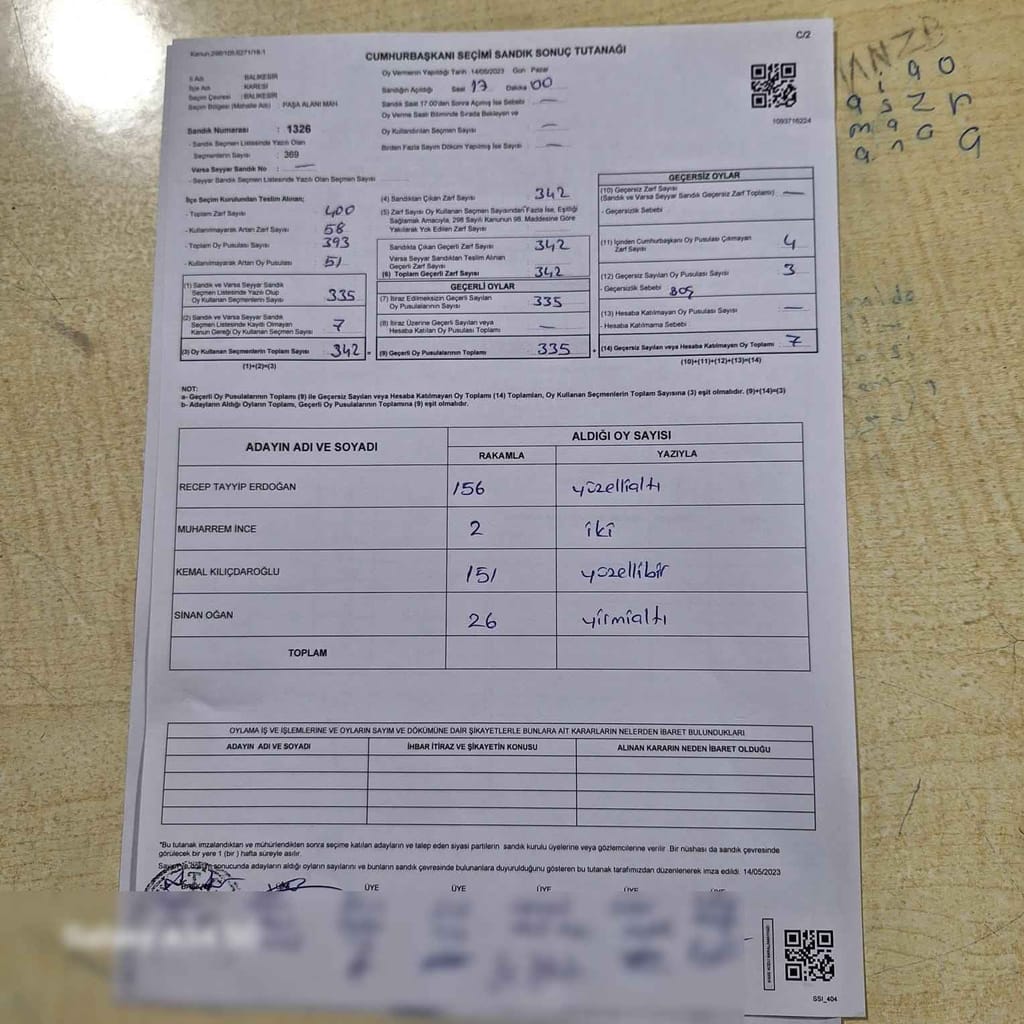 Kanun:298/105,6271/18-1
C/2
CUMHURBAŞKANI SEÇİMİ SANDIK SONUÇ TUTANAĞI
İl Adı : BALIKESİR
İlçe Adı : KARESİ
Seçim Çevresi : BALIKESİR
Seçim Bölgesi (Mahalle Adı) : PAŞA ALANI MAH
Oy Vermenin Yapıldığı Tarih 14/05/2023 Gün Pazar
Sandığın Açıldığı Saat 17 Dakika 00
Sandık Saat 17.00'den Sonra Açılmış İse Sebebi —
Oy Verme Saati Bitiminde Sırada Bekleyen ve
Oy Kullandırılan Seçmen Sayısı —
Birden Fazla Sayım Döküm Yapılmış İse Sayısı —
1093716224
Sandık Numarası : 1326
- Sandık Seçmen Listesinde Yazılı Olan
Seçmenlerin Sayısı : 369
Varsa Seyyar Sandık No : —
- Seyyar Sandık Seçmen Listesinde Yazılı Olan Seçmen Sayısı
İlçe Seçim Kurulundan Teslim Alınan;
- Toplam Zarf Sayısı 400
- Kullanılmayarak Artan Zarf Sayısı 58
- Toplam Oy Pusulası Sayısı 393
- Kullanılmayarak Artan Oy Pusulası 51
(1) Sandık ve Varsa Seyyar Sandık
Seçmen Listesinde Yazılı Olup
Oy Kullanan Seçmenlerin Sayısı 335
(2) Sandık ve Varsa Seyyar Sandık
Seçmen Listesinde Kayıtlı Olmayan
Kanun Gereği Oy Kullanan Seçmen Sayısı 7
(3) Oy Kullanan Seçmenlerin Toplam Sayısı 342 =
(1)+(2)=(3)
(4) Sandıktan Çıkan Zarf Sayısı 342
(5) Zarf Sayısı Oy Kullanan Seçmen Sayısından Fazla İse, Eşitliği
Sağlamak Amacıyla, 298 Sayılı Kanunun 98. Maddesine Göre
Yakılarak Yok Edilen Zarf Sayısı
Sandıkta Çıkan Geçerli Zarf Sayısı 342
Varsa Seyyar Sandıktan Teslim Alınan
Geçerli Zarf Sayısı
(6) Toplam Geçerli Zarf Sayısı 342
GEÇERLİ OYLAR
(7) İtiraz Edilmeksizin Geçerli Sayılan
Oy Pusulalarının Sayısı 335
(8) İtiraz Üzerine Geçerli Sayılan veya
Hesaba Katılan Oy Pusulası Toplamı —
(9) Geçerli Oy Pusulalarının Toplamı 335 +
GEÇERSİZ OYLAR
(10) Geçersiz Zarf Sayısı
(Sandık ve Varsa Seyyar Sandık Geçersiz Zarf Toplamı) —
- Geçersizlik Sebebi
(11) İçinden Cumhurbaşkanı Oy Pusulası Çıkmayan
Zarf Sayısı 4
(12) Geçersiz Sayılan Oy Pusulası Sayısı 3
- Geçersizlik Sebebi boş
(13) Hesaba Katılmayan Oy Pusulası Sayısı —
- Hesaba Katılmama Sebebi
(14) Geçersiz Sayılan veya Hesaba Katılmayan Oy Toplamı 7
(10)+(11)+(12)+(13)=(14)
NOT:
a- Geçerli Oy Pusulalarının Toplamı (9) ile Geçersiz Sayılan veya Hesaba Katılmayan Oy Toplamı (14) Toplamları, Oy Kullanan Seçmenlerin Toplam Sayısına (3) eşit olmalıdır. (9)+(14)=(3)
b- Adayların Aldığı Oyların Toplamı, Geçerli Oy Pusulalarının Toplamına (9) eşit olmalıdır.
ADAYIN ADI VE SOYADI
ALDIĞI OY SAYISI
RAKAMLA YAZIYLA
RECEP TAYYİP ERDOĞAN 156 yüzellialtı
MUHARREM İNCE 2 iki
KEMAL KILIÇDAROĞLU 151 yüzellibir
SİNAN OĞAN 26 yirmialtı
TOPLAM
OYLAMA İŞ VE İŞLEMLERİNE VE OYLARIN SAYIM VE DÖKÜMÜNE DAİR ŞİKAYETLERLE BUNLARA AİT KARARLARIN NELERDEN İBARET BULUNDUKLARI
ADAYIN ADI VE SOYADI İHBAR İTİRAZ VE ŞİKAYETİN KONUSU ALINAN KARARIN NEDEN İBARET OLDUĞU
*Bu tutanak imzalandıktan ve mühürlendikten sonra seçime katılan adayların ve talep eden siyasi partilerin sandık kurulu üyelerine veya gözlemcilerine verilir. Bir nüshası da sandık çevresinde
görülecek bir yere 1 (bir) hafta süreyle asılır.
sonucunda adayların aldığı oyların sayılarını ve bunların sandık çevresinde bulunanlara duyurulduğunu gösteren bu tutanak tarafımızdan düzenlenerek imza edildi. 14/05/2023
ÜYE ÜYE ÜYE ÜYE ÜYE
SSI_404